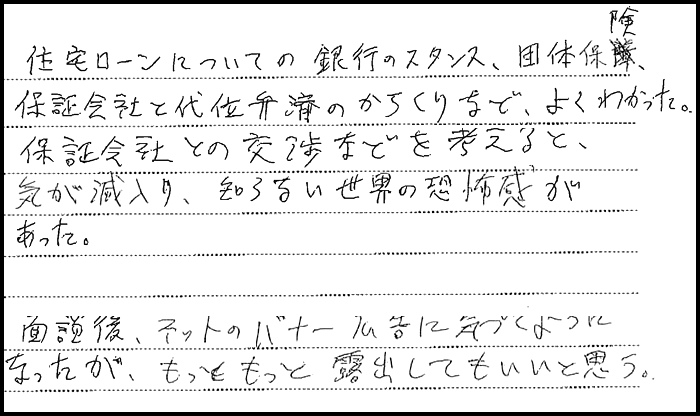 住宅ローンについての銀行のスタンス、団体保険、
保証会社と代位弁済のからくりなど、よくわかった。
保証会社との交渉などを考えると、
気が減入り、知らない世界の恐怖感が
あった。
面談後、ネットのバナー広告に気づくように
なったが、もっともっと露出してもいいと思う。